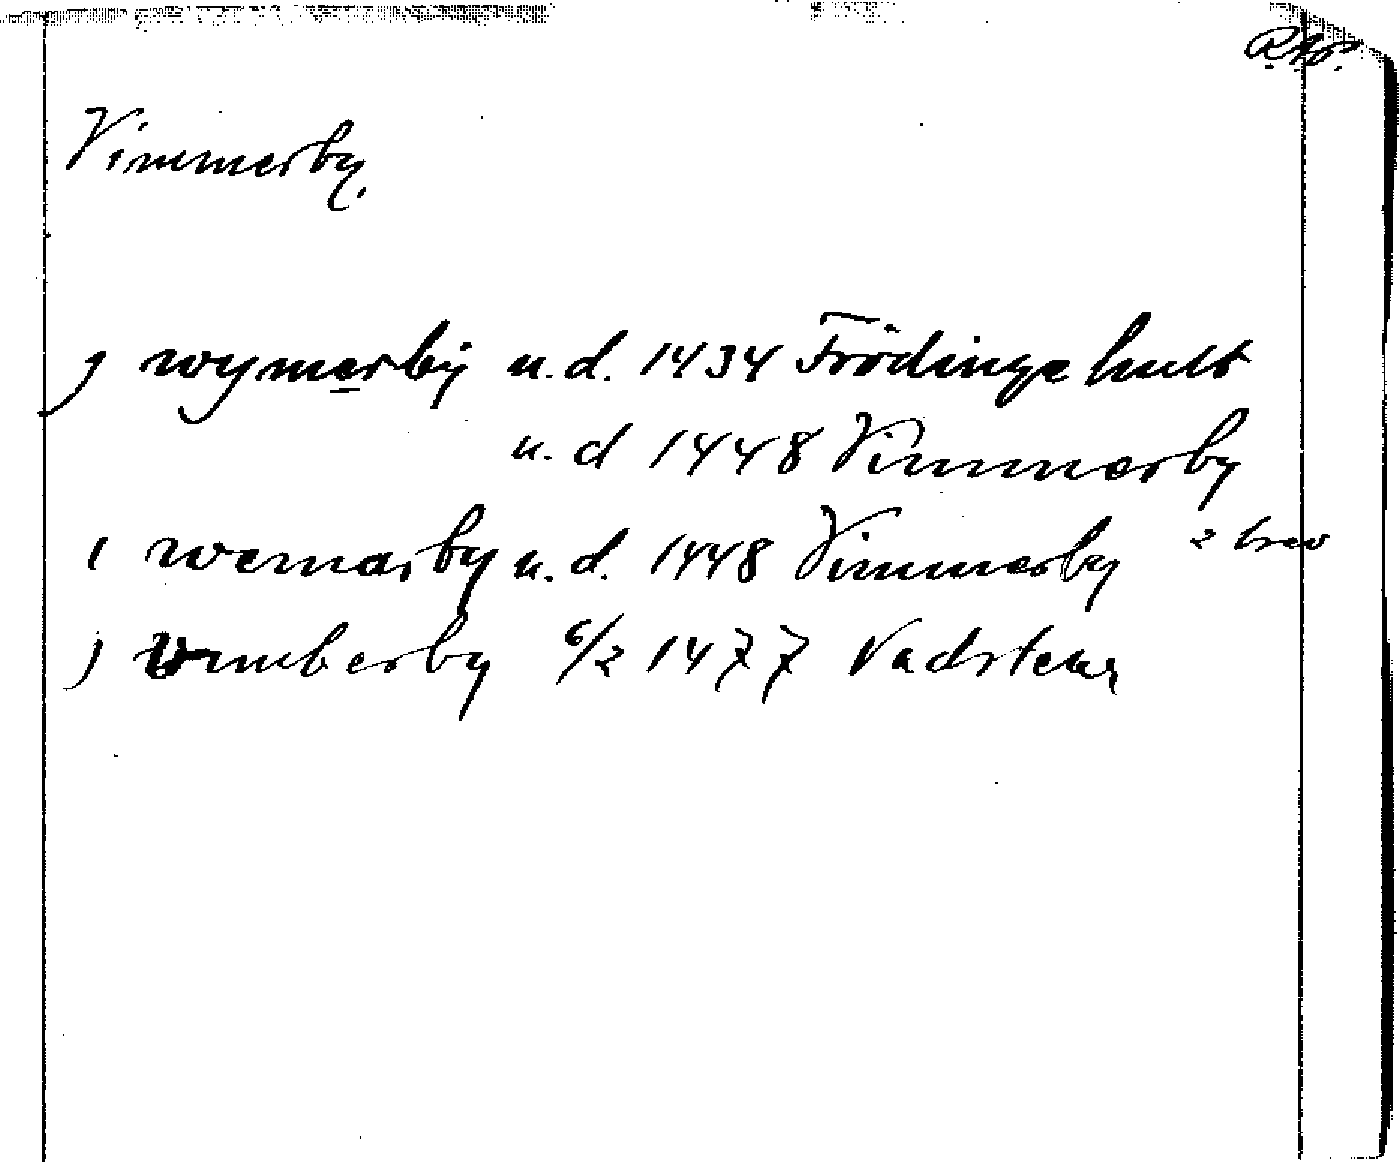 RAp.
Vimmerby,
j wymerbÿ u.d. 1434 Frödingehult
u.d 1448 Vimmerby
i wemarby u.d. 1448 Vimmerby 2 brev
j vimberby 6/2 1477 Vadstena